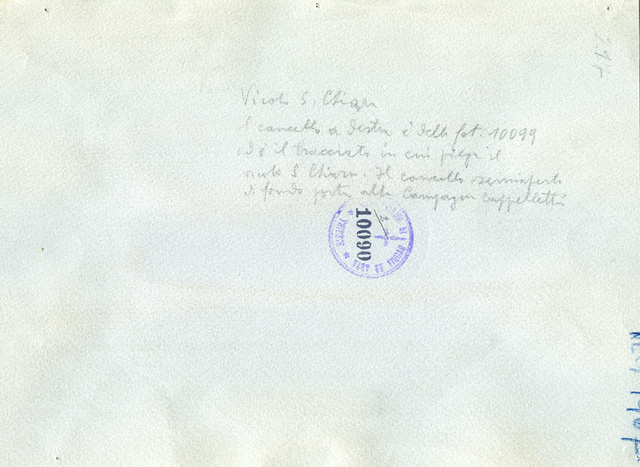 Vicolo S. Chiara
Il cancello a destra è della fot. 10099
ed è il tracciato in cui piega il
vicolo S Chiara. Il cancello semiaperto
di fondo porta alla Campagna Cappelletti
10090